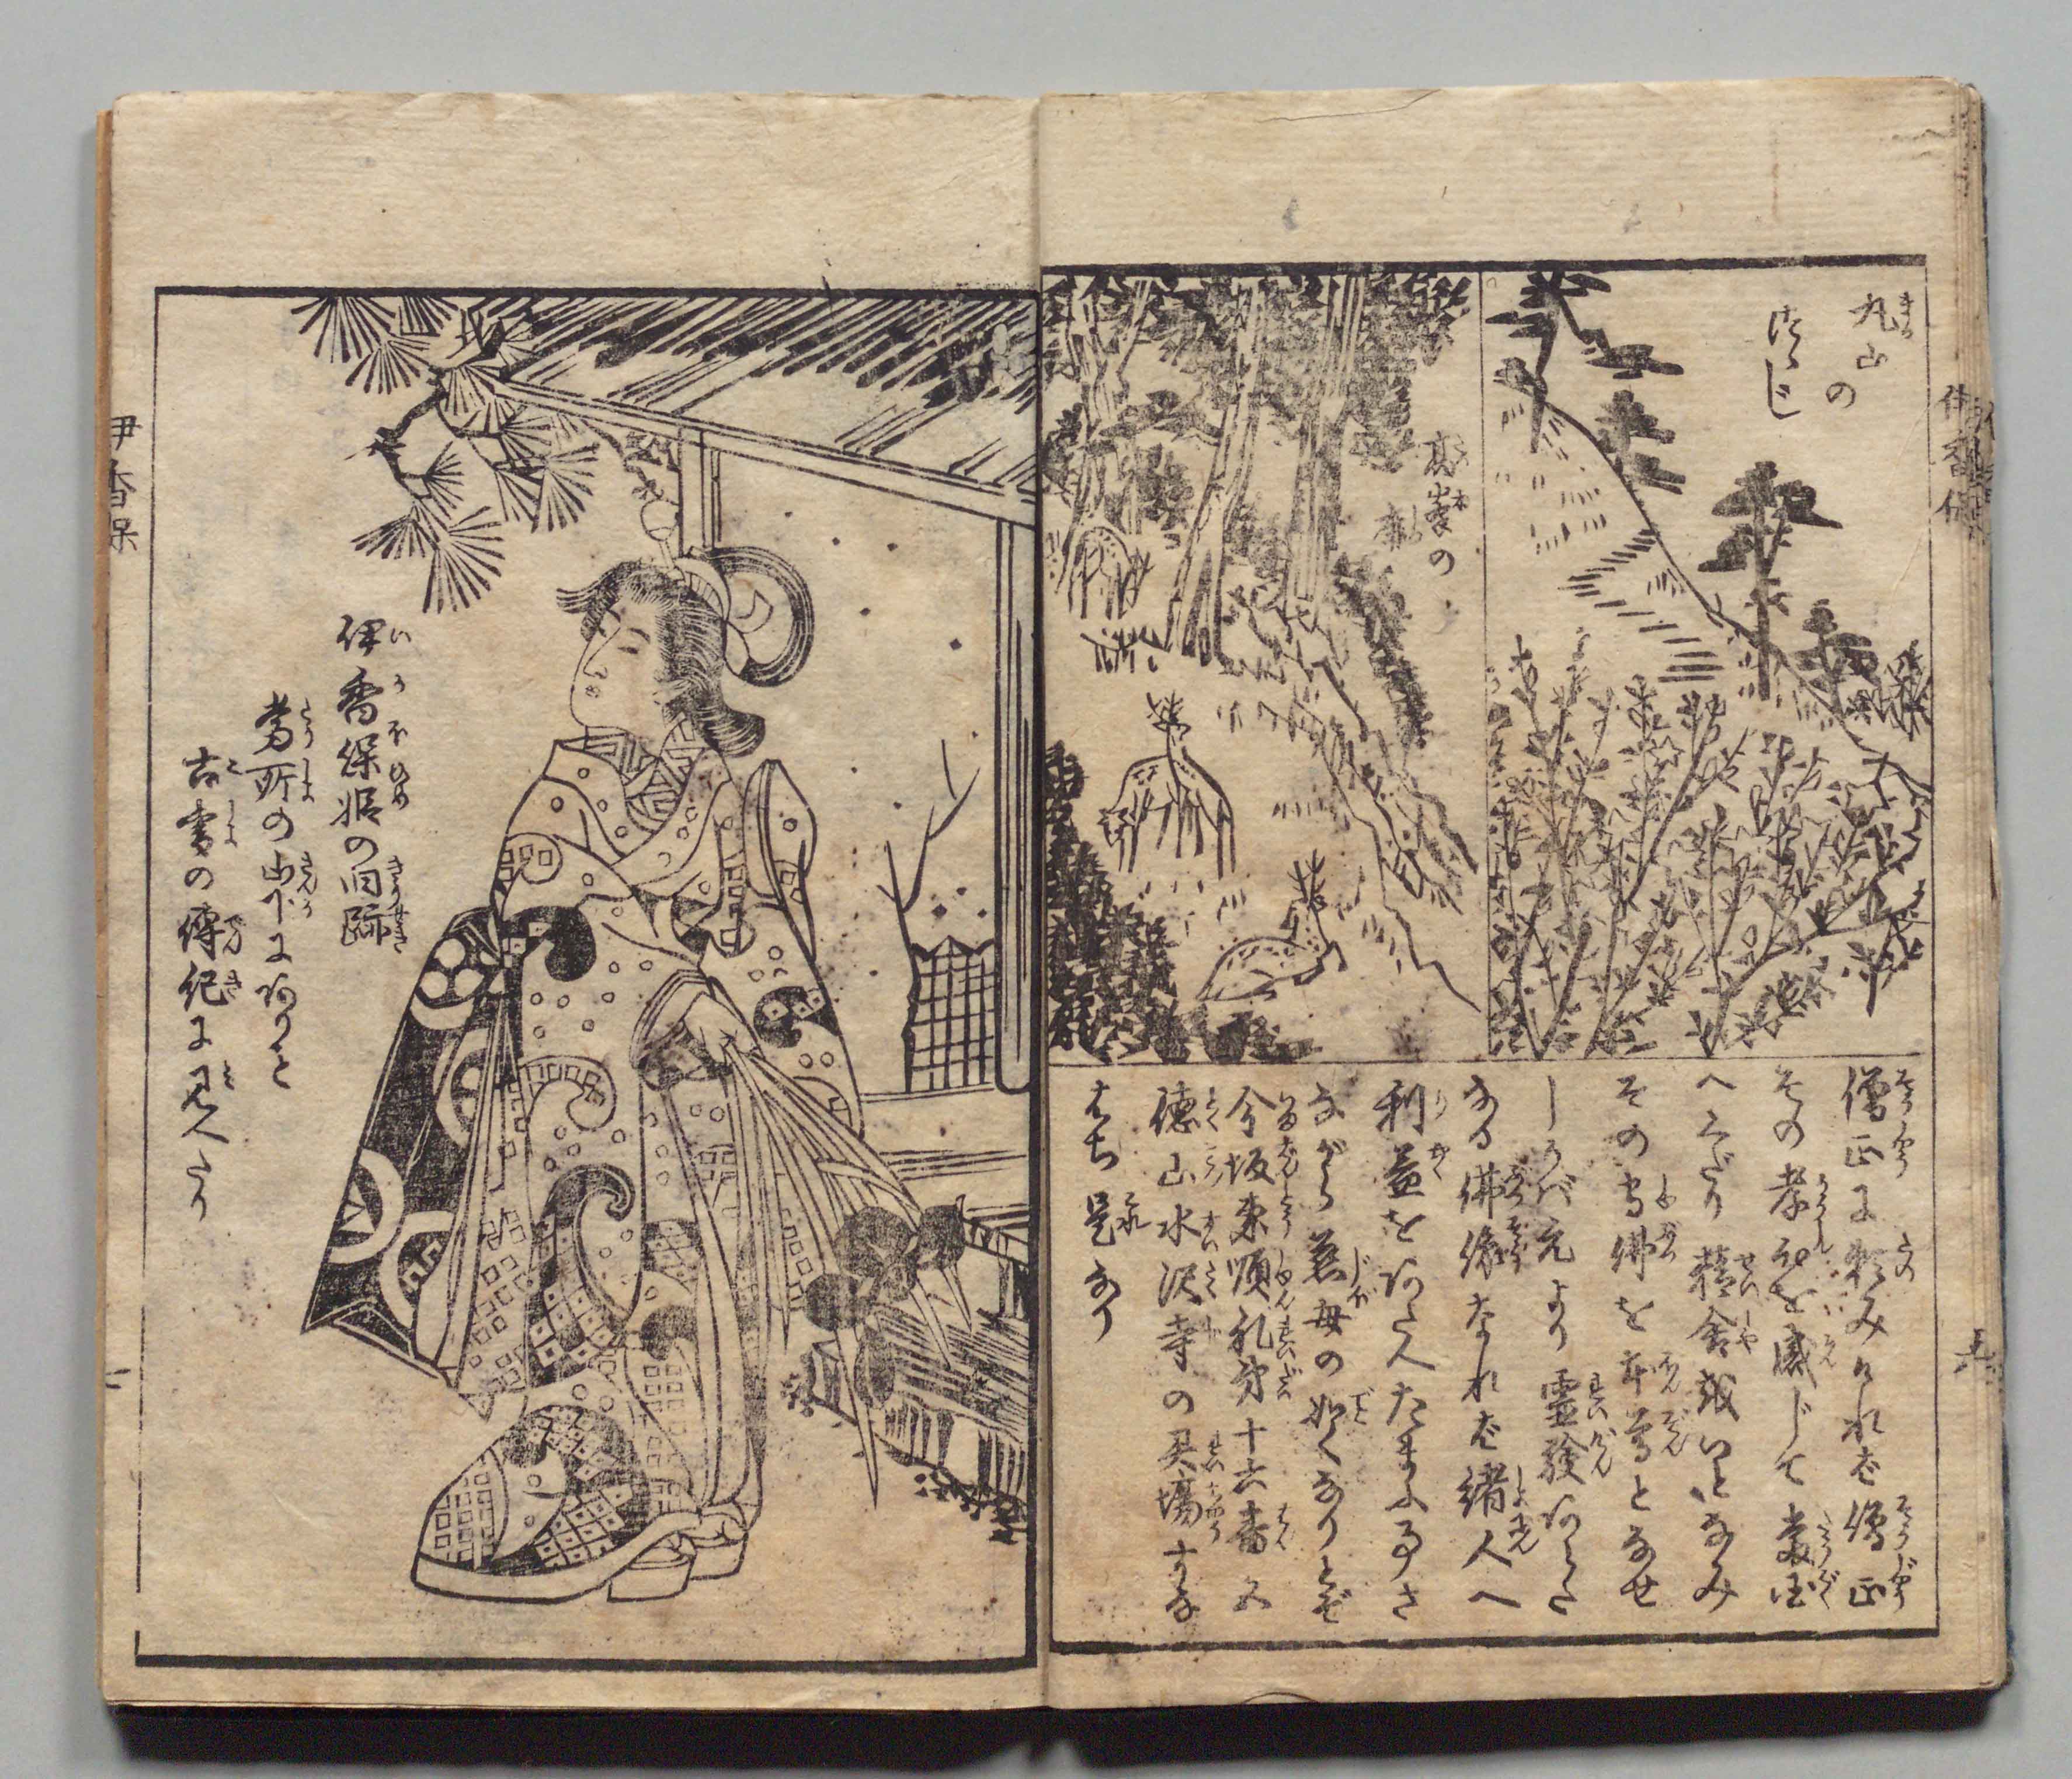 丸山の
つゝじ
高峯の
僧正に頼みけれバ僧正
その孝心を感じて当国
へくだり精舎或いとなみ
その守佛を本尊となせ
しかバ元より霊験あらた
なる佛像なれバ緒人へ
利益をあたへたまふ事さ
ながら慈母の如くなりとぞ
今坂東順礼第十六番五
徳山水沢寺の灵場すな
はち是なり
伊香保
伊香保姫の旧跡
当所の山下にありと
古書の傳紀に見へたり
伊香保